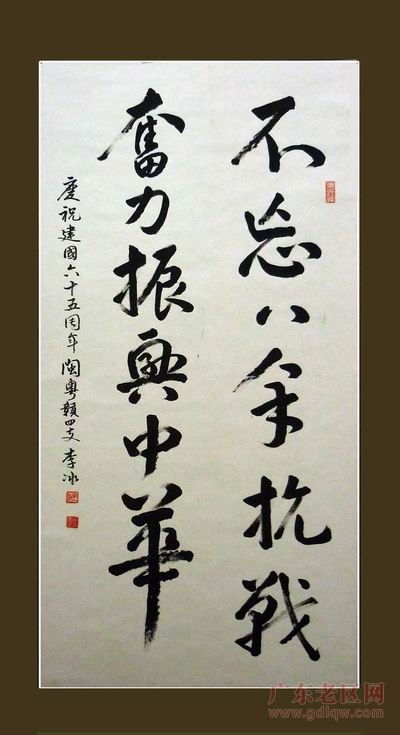 不忘八年抗戰
奮力振興中華
慶祝建國六十五周年 閩粵贛四支 李冰
广东老区网
www.gdlqw.com